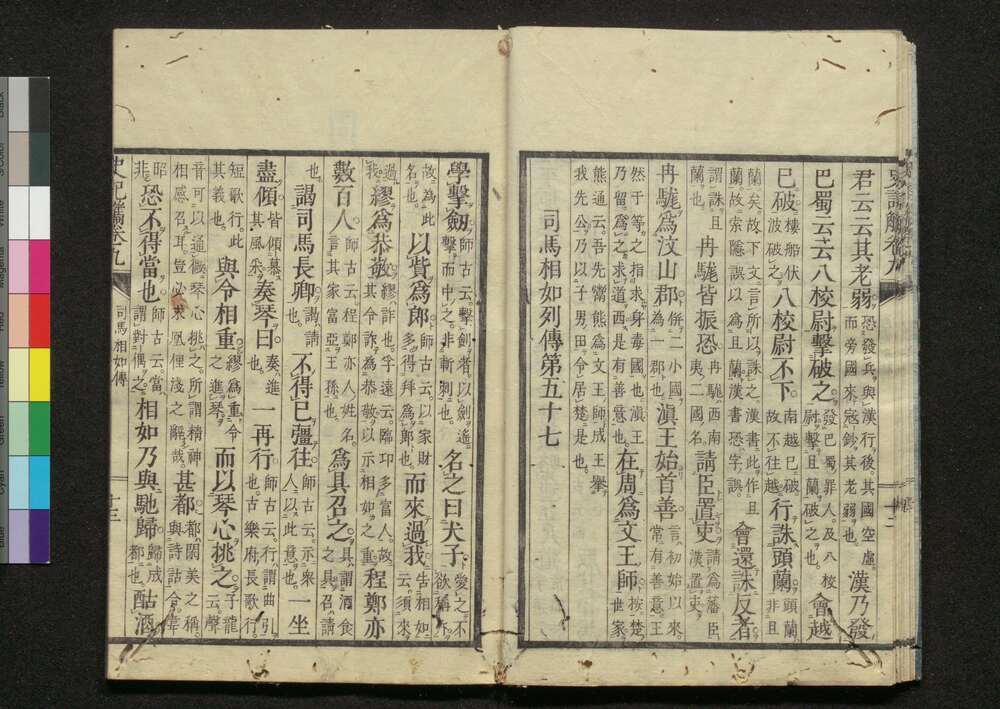 史記觽卷九　十二
君云云其老弱恐發兵與漢行後其國空虛而旁國來寇鈔其老弱也漢乃發
巴蜀云云八校尉擊破之發巴蜀罪人及八校尉擊且蘭破之也會越
已破樓船伏波破之八校尉不下南越已破故不往越行誅頭蘭頭蘭非且
蘭矣故下文言所以誅之漢書此作且蘭故索隱誤以爲且蘭漢書恐字誤會還誅反者
謂誅且蘭也冉駹皆振恐冉駹西南夷二國名請臣置吏請爲藩臣漢置吏
冉駹爲汶山郡併二小國爲一郡也滇王始首善言初始以來常有善意王
然于等之指求身毒國也滇王乃留爲之求道西是有善意也在周爲文王師按楚世家
熊通云吾先鬻熊爲文王師成王舉我先公乃以子男田令居楚是也
司馬相如列傳第五十七
學擊劔師古云擊劍者以劍遙擊而中之非斬刺也名之曰犬子愛之不欲稱
故爲此名也以貲爲郎師古云以家財多得拜爲郎也而來過我告相如云須來
過我繆爲恭敬繆詐也孚遠云臨卭多富人故令詐爲恭敬以示相如之重程鄭亦
數百人師古云程鄭亦人姓名言其家富亞王孫也爲具召之具謂酒食之具召請
也謁司馬長卿謁請也不得已彊往師古云示衆人以此意也一坐
盡傾皆傾慕其風采奏琴曰奏進也一再行師古云行謂曲引也古樂府長歌行
短歌行此其義也與令相重繆爲重令之進琴而以琴心挑之子龍云聲
音可以遙感琴心挑之所謂精神相感召耳豈必求凰俚淺之辭哉甚都都閑美之稱與詩詁合韋
昭非恐不得當也師古云當謂對偶之相如乃與馳歸歸成都也酤酒
史記觽卷九　司馬相如傳　十三